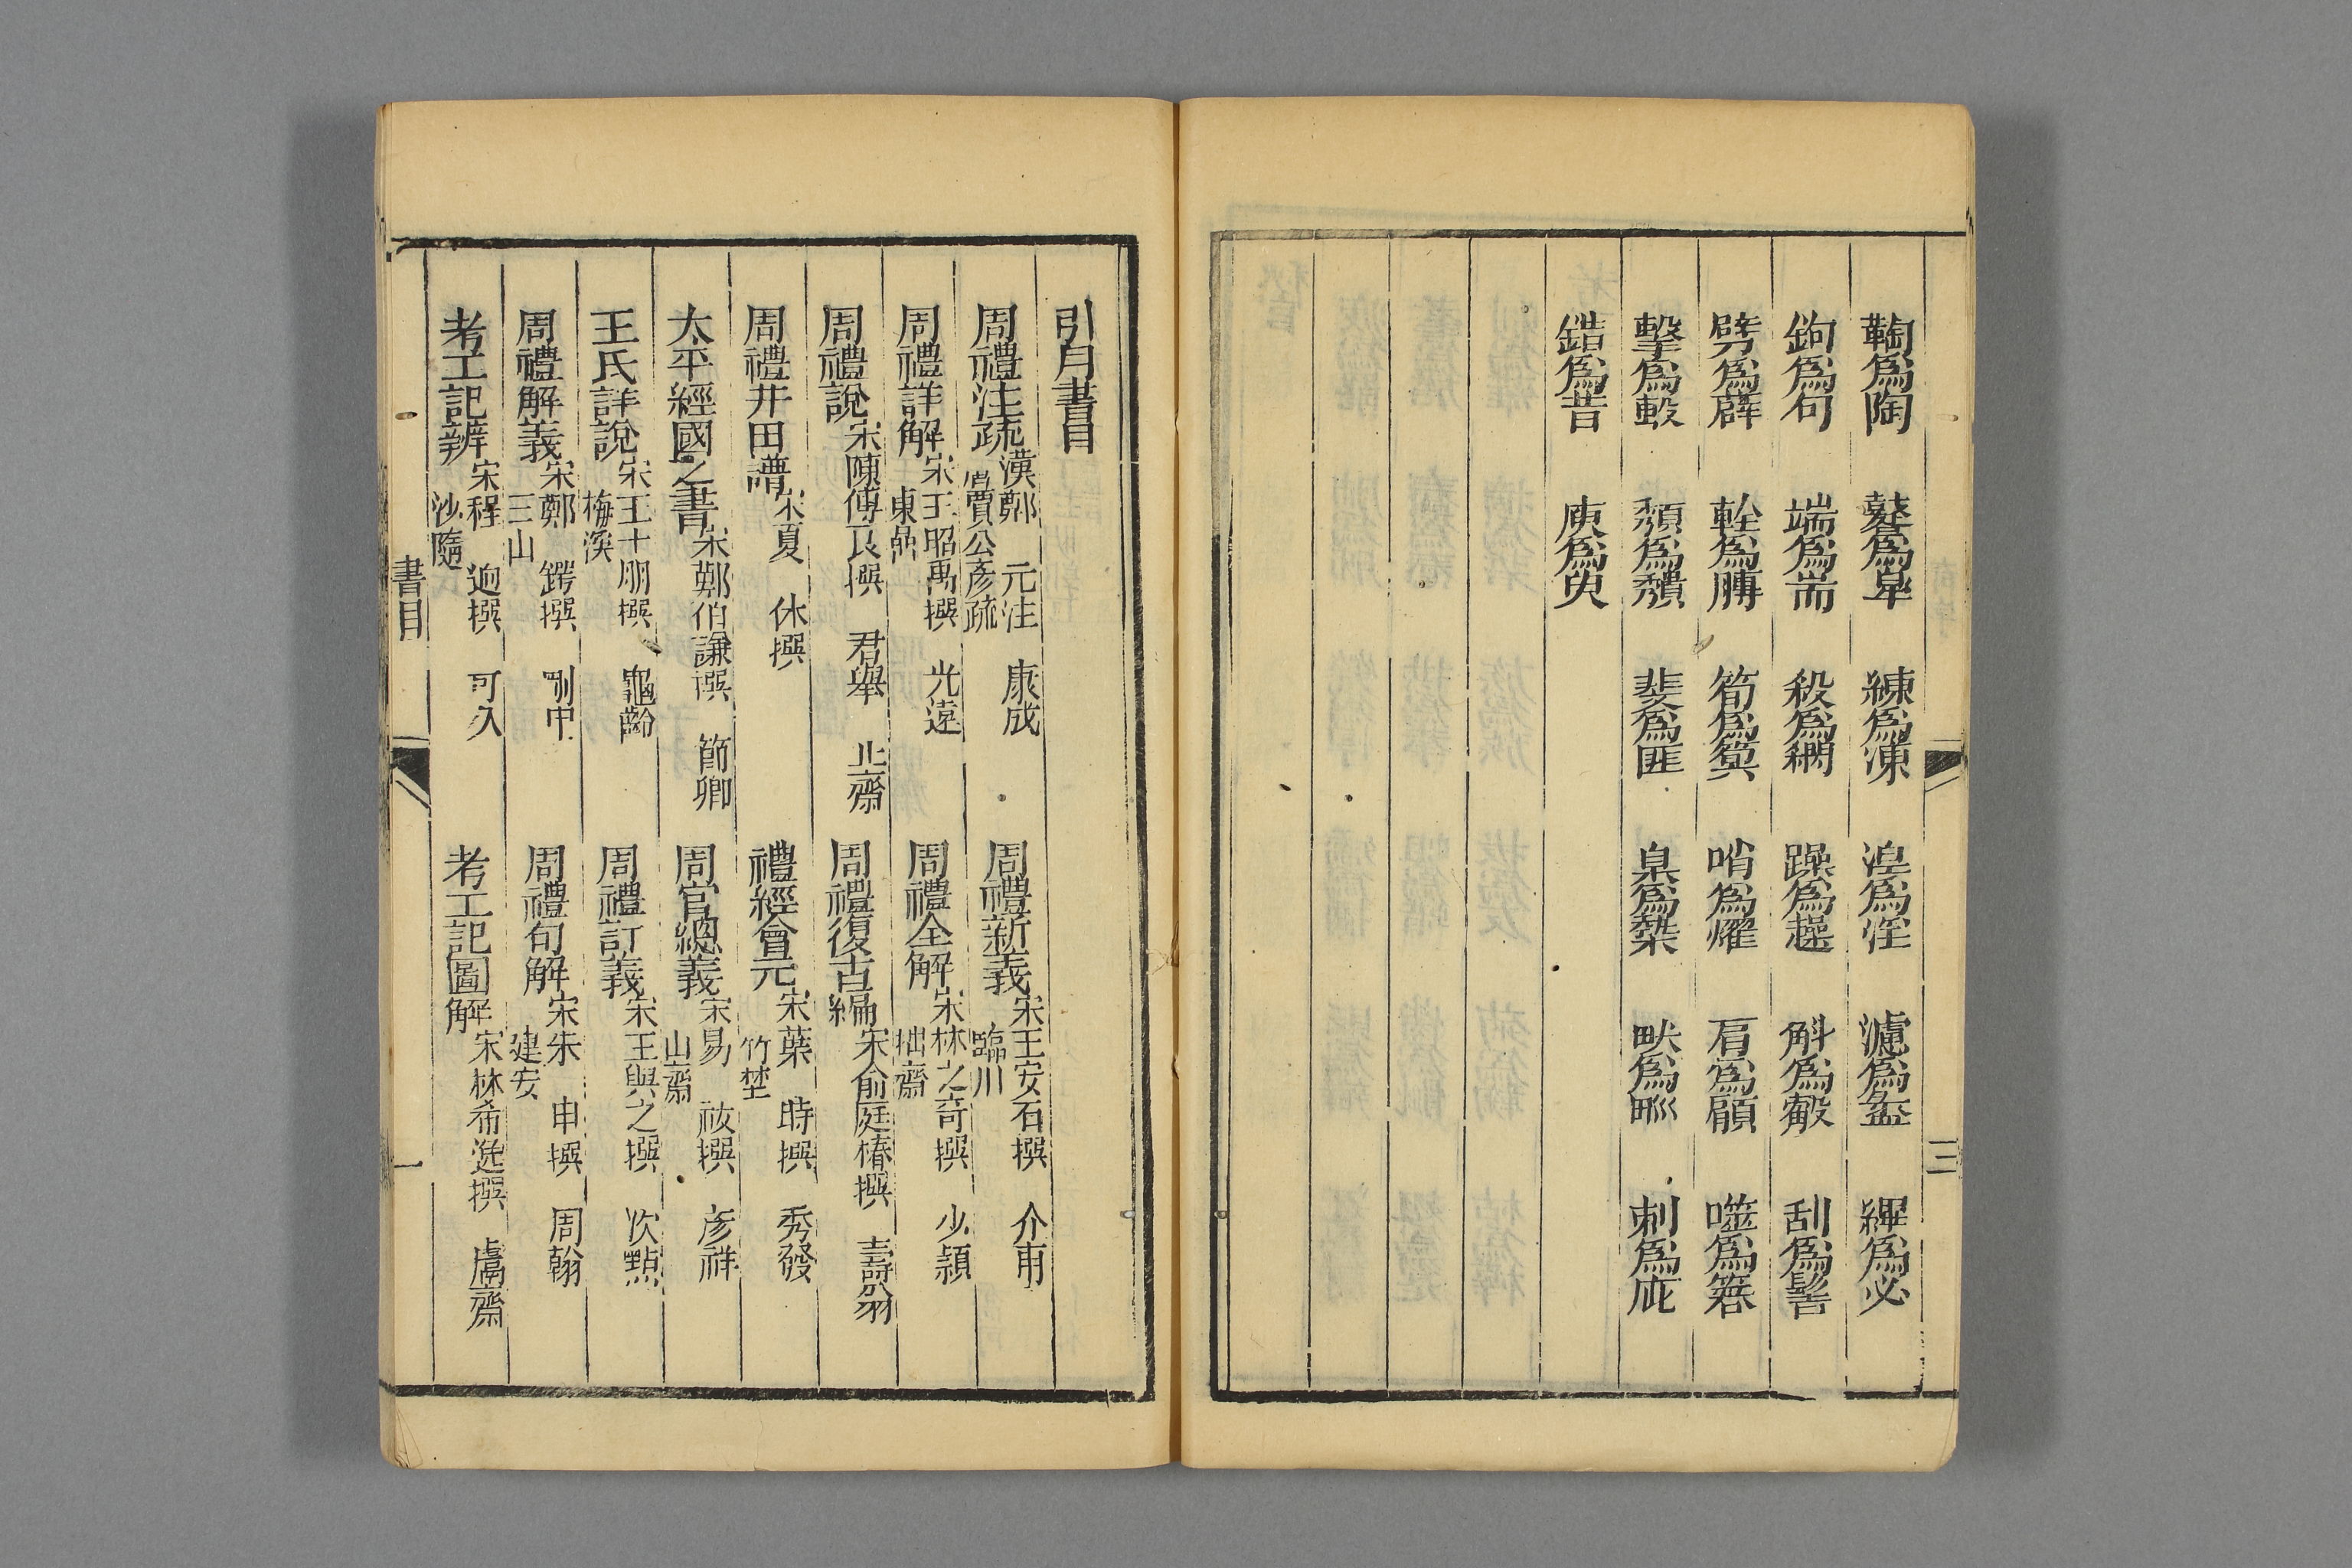 為陶　鼛為皋　練為湅　湼為淫　濾為盝　縪為必
鉤為句　端為耑　殺為　躁為趮　斛為㲉　刮為髺
劈為薜　輇為膞　筍為簨　哨為燿　肩為顅　噬為簭
擊為毄　頽為　斐為匪　臬為槷　畎為甽　刺為庛
錯為昔　庾為臾
三
引用書目
周禮注疏 漢鄭　元注　康成 唐賈公彥疏　周禮新義 宋王安石撰　介甫 臨川
周禮詳解 宋王昭禹撰　光遠 東巖　周禮全解 宋林之奇撰　少穎 拙齋
周禮說 宋陳傅良撰　君舉　止齋　周禮復古編 宋俞庭椿撰　壽翁
周禮井田譜 宋夏　休撰　禮經會元 宋葉　時撰　秀發 竹埜
太平經國之書 宋鄭伯謙撰　節卿　周官總義 宋易　祓撰　彥祥 山齋
王氏詳說 宋王十朋撰　龜齡 梅溪　周禮訂義 宋王與之撰　次點
周禮解義 宋鄭　鍔撰　剛中 三山　周禮句解 宋朱　申撰　周翰 建安
考工記辨 宋程　迥撰　可久 沙隨　考工記圖解 宋林希逸撰　鬳齋
書目　一